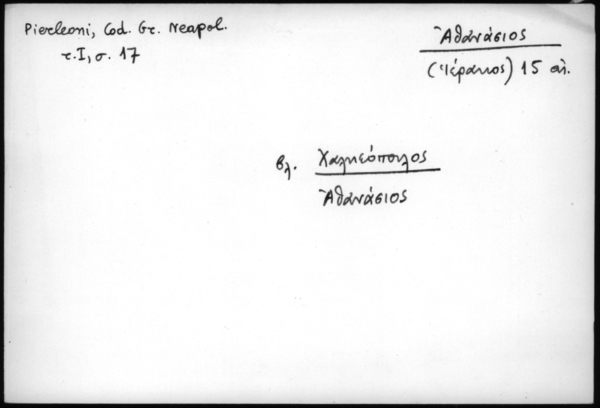 Pierleoni, Cod. Gr. Neapol.
τ. I, σ. 17
Ἀθανάσιος
(Ἱέρακος) 15 αἰ.
βλ. Χαλκεόπουλος
Ἀθανάσιος